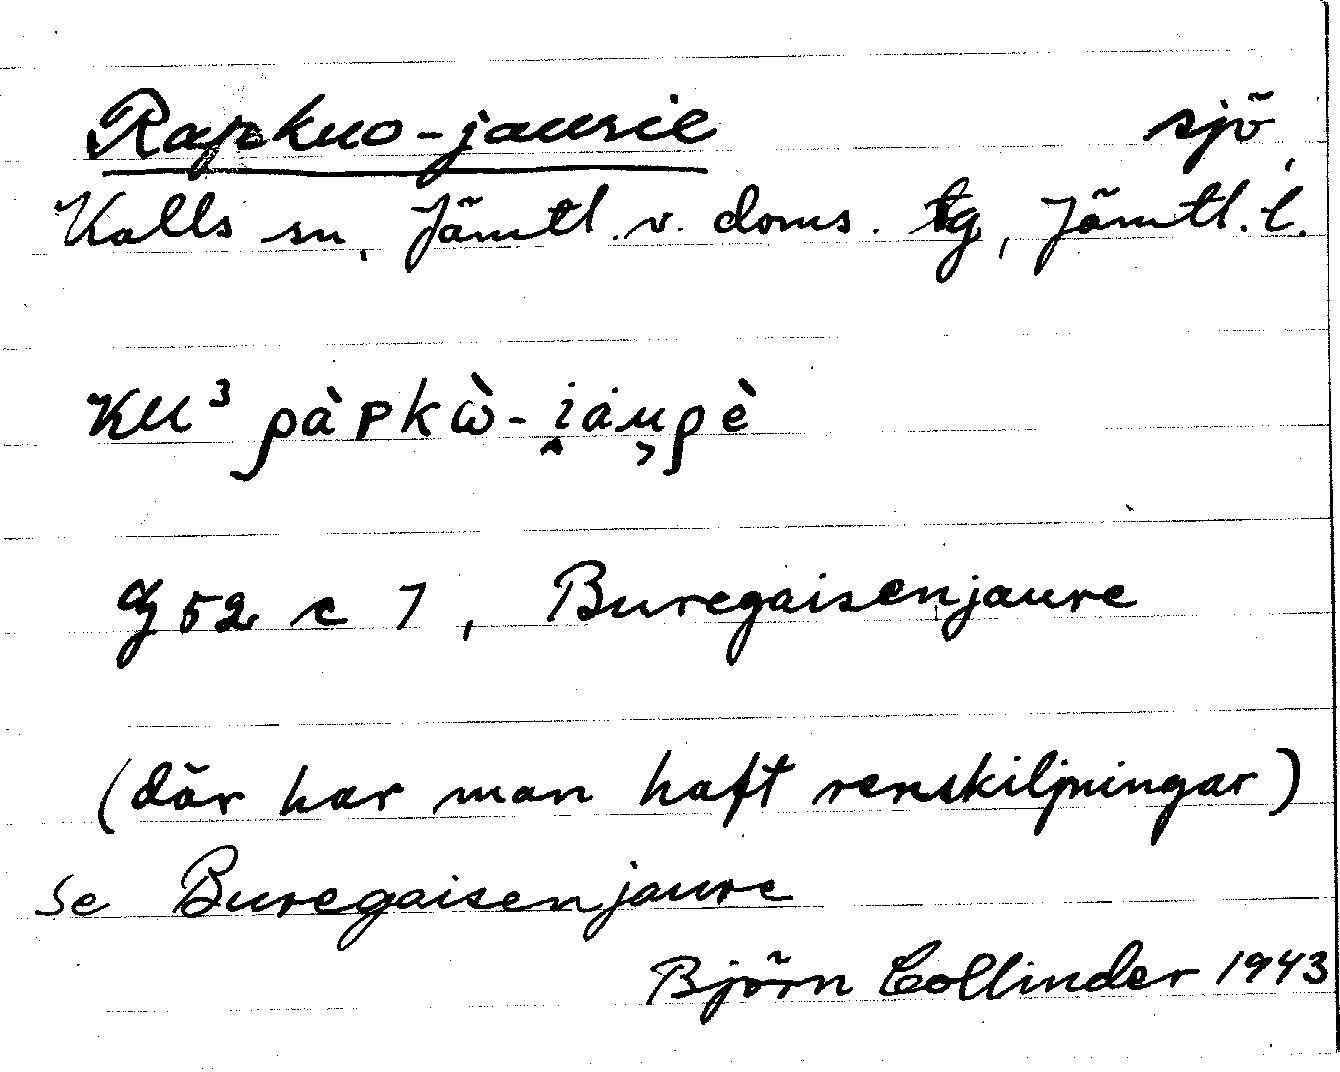 Rapkuo-jaurie sjö
Kalls sn, Jämtl. v. doms. tg, Jämtl. l.
KM³ ρàᴘkὼ-i̭ȧu̯ρè
G 52 c 7, Buregaisenjaure
(där har man haft renskiljningar)
Se Buregaisenjaure
Björn Collinder 1943